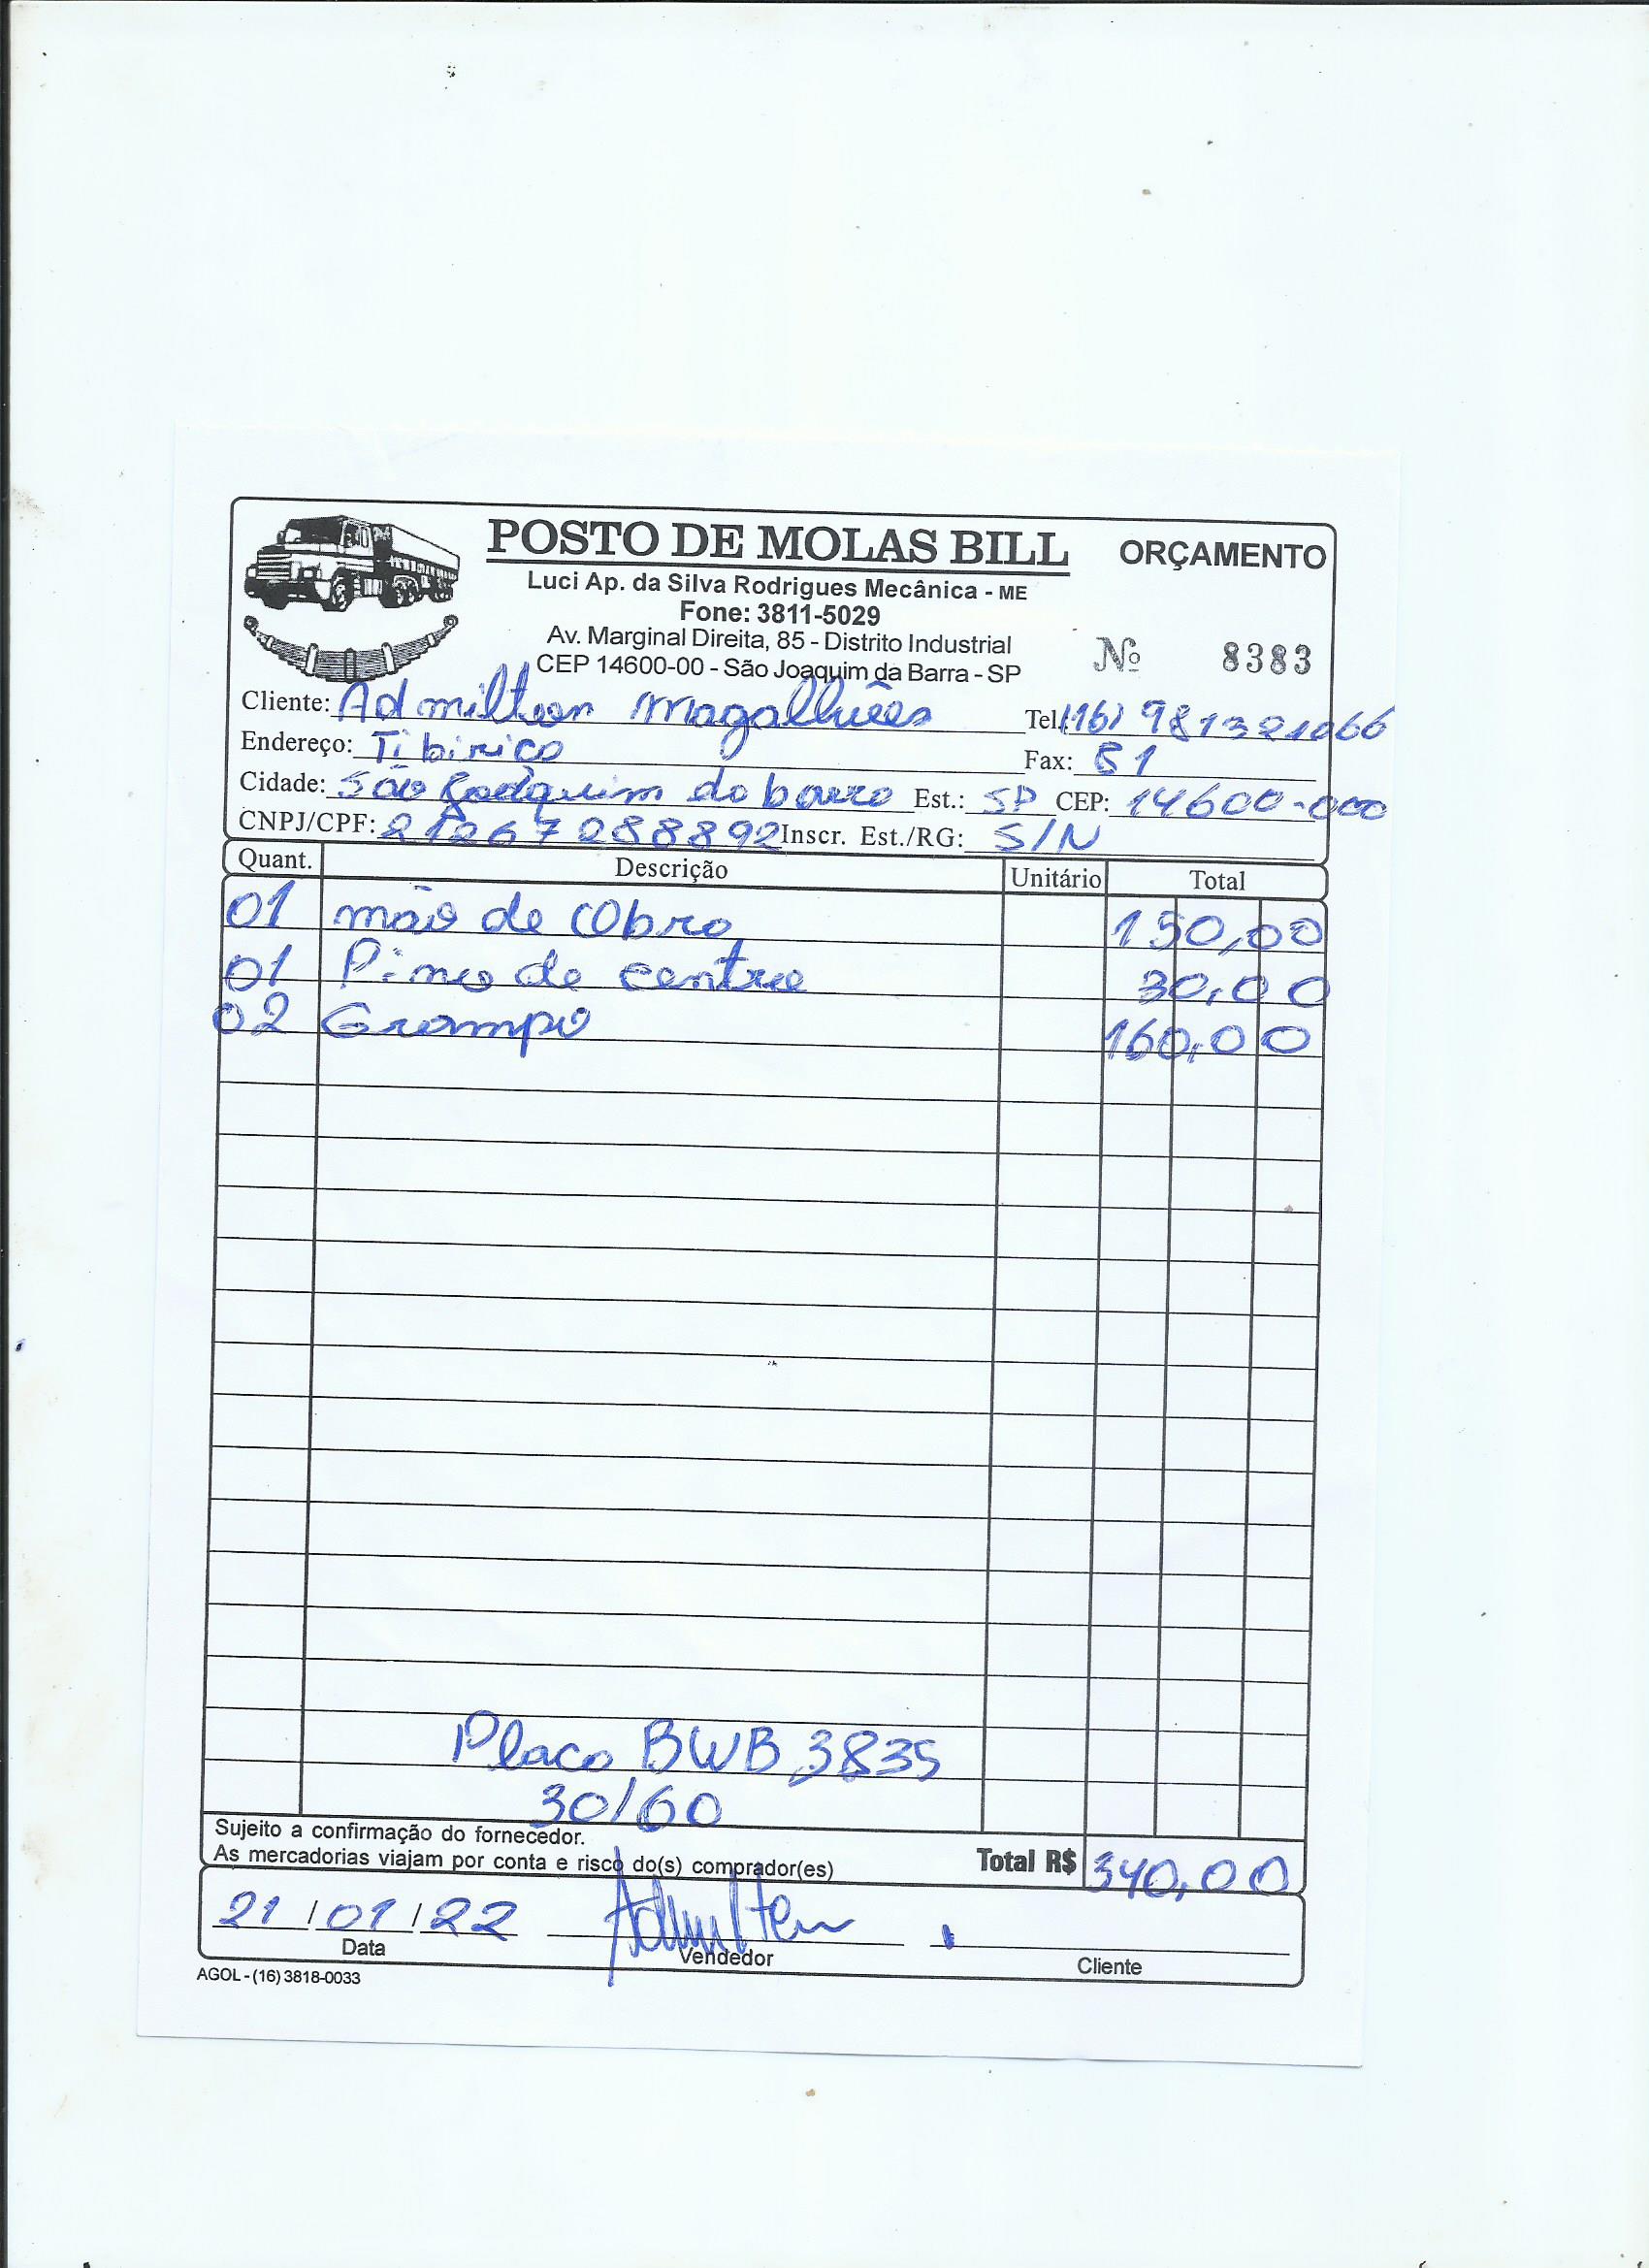 POSTO DE MOLAS BILL ORÇAMENTO
Luci Ap. da Silva Rodrigues Mecânica - ME
Fone: 3811-5029
Av. Marginal Direita, 85 - Distrito Industrial
Nº 8383
CEP 14600-00 - São Joaquim da Barra - SP
Cliente: Admilton Magalhães Tel.: (16) 981321066
Endereço: Tibiriça Fax: 81
Cidade: São Joaquim da barra Est.: SP CEP: 14600-000
CNPJ/CPF: 21267288892 Inscr. Est./RG: S/N
Quant. Descrição Unitário Total
01 mão de Obra 150,00
01 Pino de centro 30,00
02 Grampo 160,00
Placa BWB 3835
30/60
Sujeito a confirmação do fornecedor.
As mercadorias viajam por conta e risco do(s) comprador(es) Total R$ 340,00
21/01/22 Admilton
Data Vendedor Cliente
AGOL - (16) 3818-0033